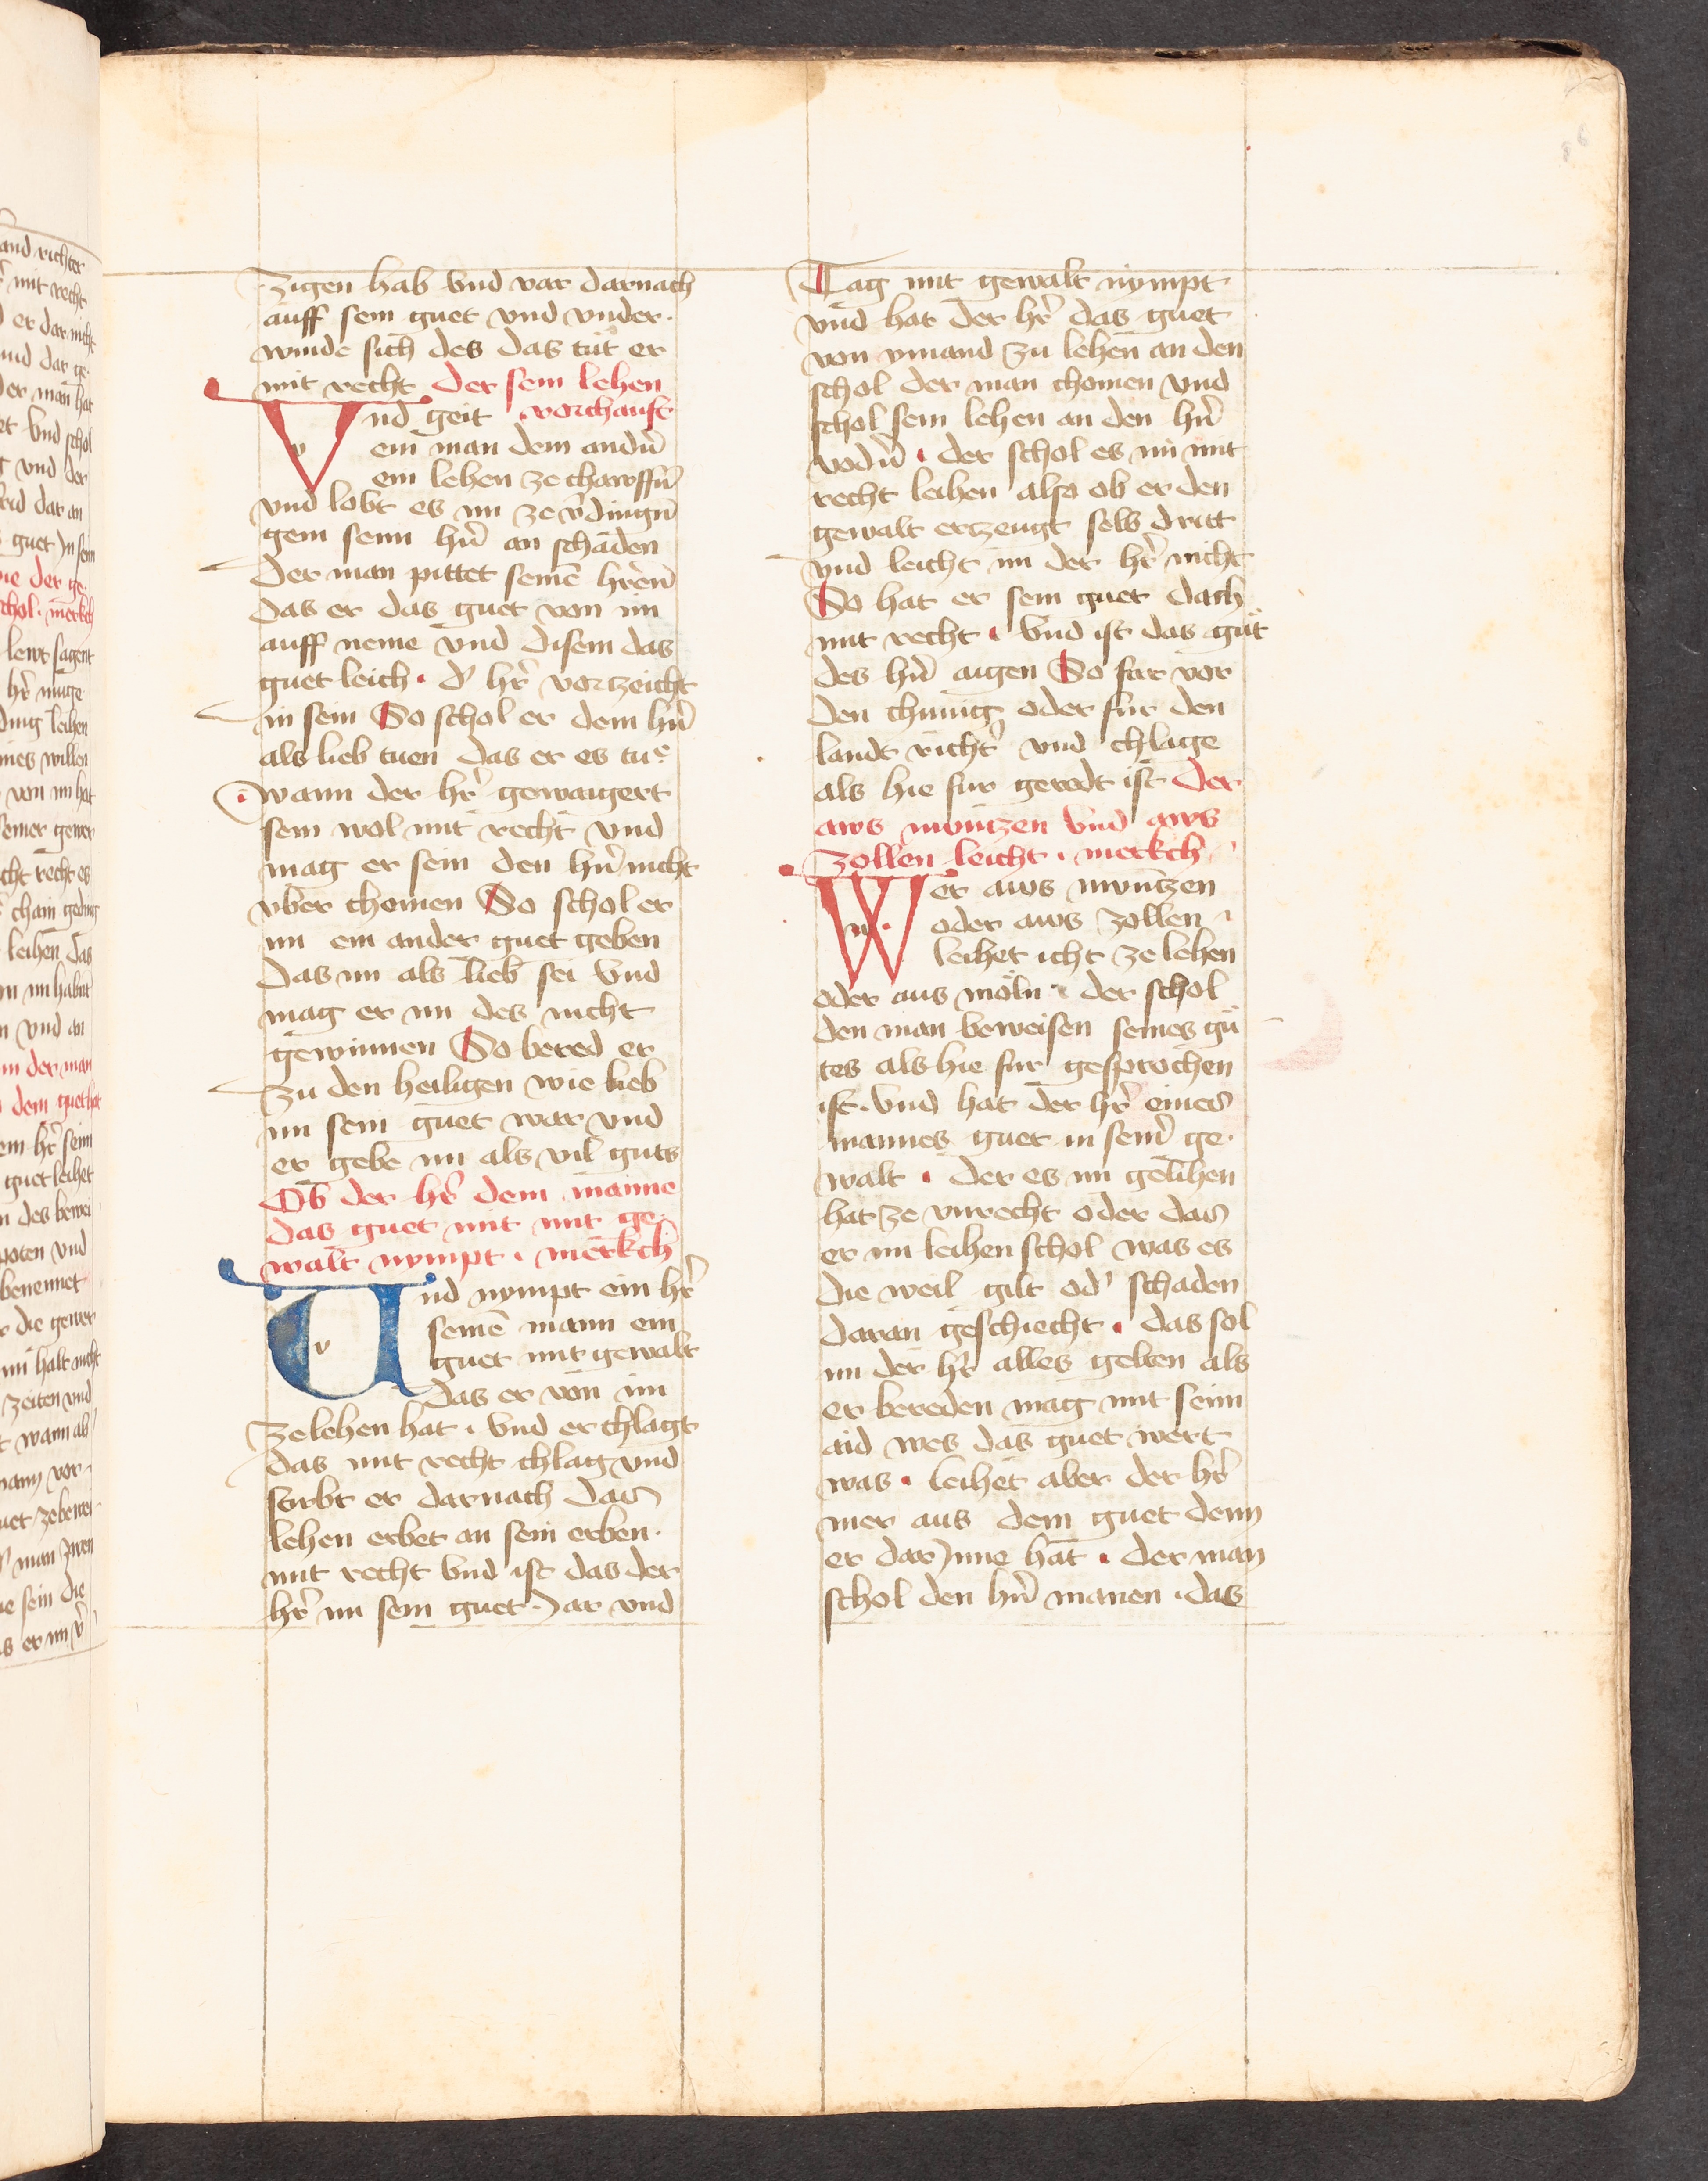 zigen hab vnd var darnach
auff sein guet vnd vnder·
winde sich des das tut er
mit recht Der sein lehen
Vnd geit vorchauft
ein man dem andn̄
ein lehen ze chawffn̄
vnd lobt es im ze v̄dingn̄
gem seim hn̄ an schaden
Der man pittet seinē hrēn̄
das er das guet von im
auff neme vnd disem das
guet leich · d' hr̄ vortzeicht
in sein So schol er dem hn̄
als lieb tuen das er es tue
wann der hr̄ gewaigert
sein wol mit recht vnd
mag er sein den hn̄ nicht
vber chomen So schol er
im ein ander guet geben
das im als lieb sei vnd
mag er im des nicht
gewinnen So bered er
zu den heiligen wie lieb
im sein guet war vnd
er gebe im als vil guts
Ob der hr̄ dem manne
das guet mit mit ge·
walt nympt · merkch
Und nympt ein hr̄
seinē mann ein
guet mit gewalt
das er von im
ze lehen hat · vnd er chlagt
das mit recht chlag vnd
stirbt er darnach das
lehen erbet an sein erben·
mit recht vnd ist das der
hr̄ im sein guet Jar vnd
Tag mit gewalt nympt
vnd hat der hr̄ das guet
von ymand zu lehen an den
schol der man chomen vnd
schol sein lehen an den hn̄
vodn̄ · der schol es im mit
recht leihen also ob er den
gewalt ertzeugt selb dritt
vnd leicht im der hr̄ nicht
So hat er sein guet dach
mit recht · vnd ist das gůt
des hn̄ aigen So far vor
den chunig oder fur den
landt richt' vnd chlage
als hie fur geredt ist Der
aws muntzen vnd aws
zollen leicht · merkch
Wer aws muntzen
oder aws zollen
leihet icht ze lehen
oder aus möln · der schol
den man beweisen seines gů
tes als hie fur gesprochen
ist · vnd hat der hr̄ eines
mannes guet in sein' ge·
walt · der es im gelihen
hat ze vnrecht oder das
er im leihen schol was es
die weil gilt od' schaden
daran geschiecht · das sol
im der hr̄ alles gelten als
er bereden mag mit seim
aid wes das guet wert
was · leihet aber der hr̄
mer aus dem guet denn
er dar Jnne hat · der man
schol den hn̄ manen · das